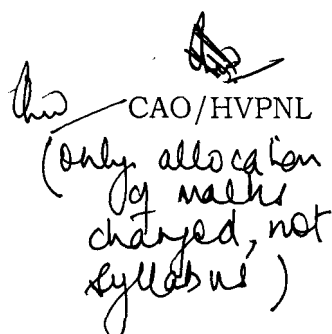 CAO/HVPNL
(only allocation
of marks
changed, not
syllabus)